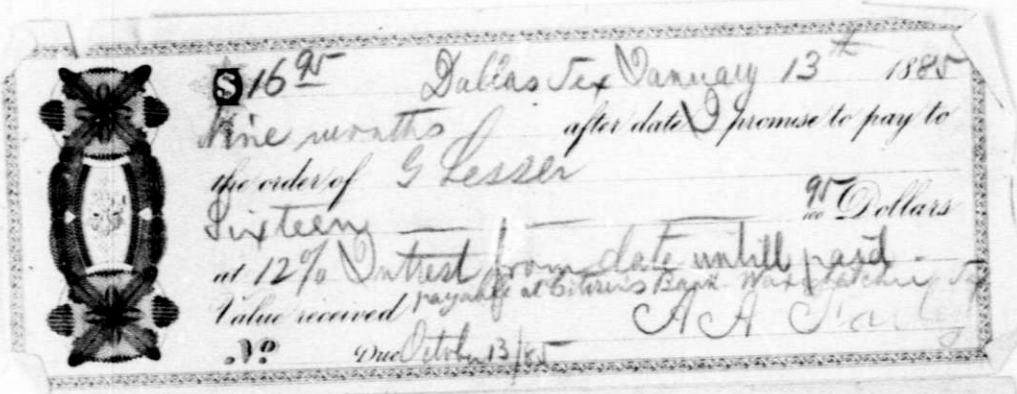 $16 95 Dallas Tex January 13th 1885
Nine months after date I promise to pay to
the order of G Lesser
Sixteen 95/100 Dollars
at 12% Intrest from date untill paid
Value received payable at Citizens Bank Waxahachie Tx
A A
No Due October 13/85